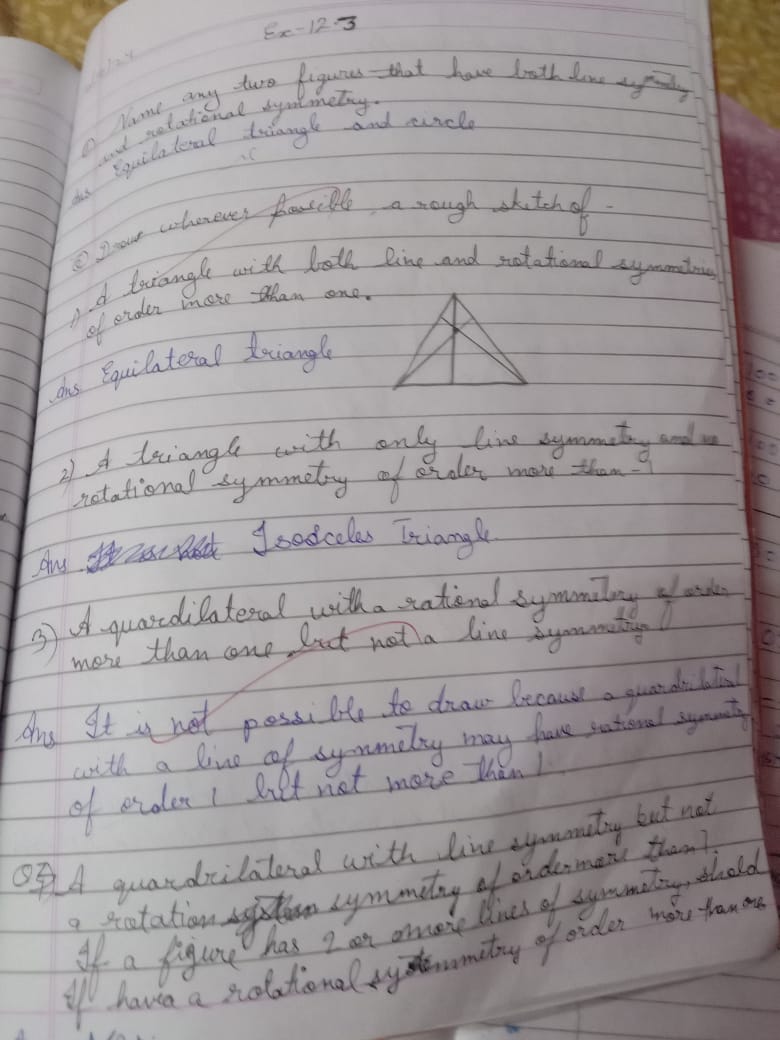 Ex-12.3
① Name any two figures that have both line symmetry
and rotational symmetry.
Ans Equilateral triangle and circle
② Draw wherever possible, a rough sketch of -
1) A triangle with both line and rotational symmetries
of order more than one.
Ans Equilateral triangle
2) A triangle with only line symmetry and no
rotational symmetry of order more than - 1
Ans Isodceles Triangle
3) A quardilateral with a rational symmetry of order
more than one but not a line symmetry
Ans It is not possible to draw because a quardrilateral
with a line of symmetry may have rational symmetry
of order 1 but not more than 1.
A quardrilateral with line symmetry but not
a rotation symmetry of order more than 1.
If a figure has 2 or more lines of symmetry, shold
If havea a rolational symmetry of order more than one